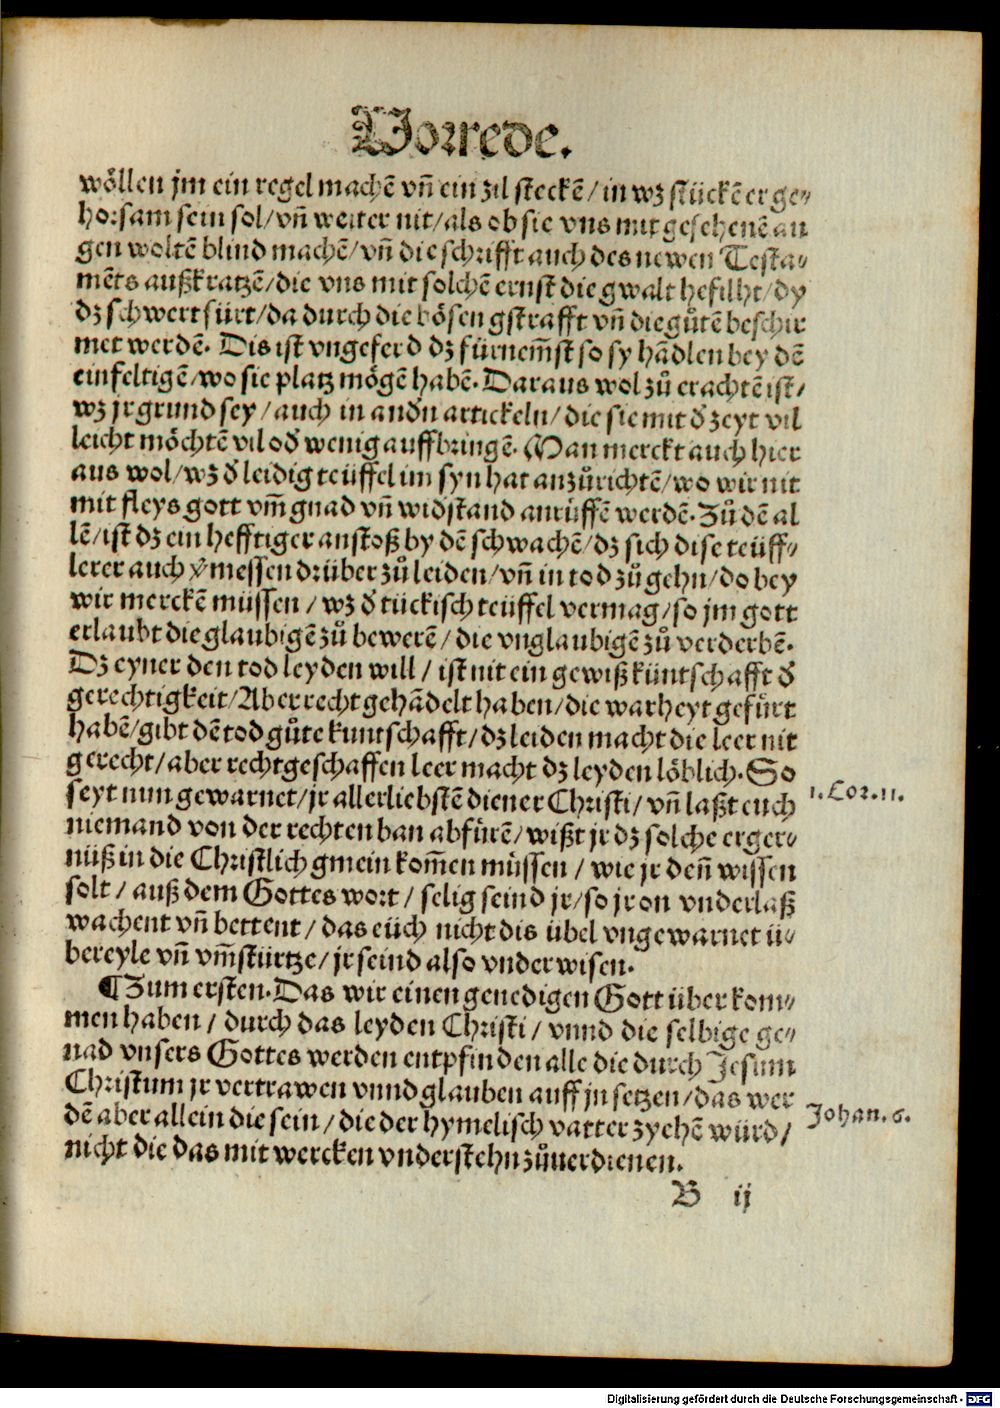 Vorrede.
wöllen jm ein regel machē vñ ein zil steckē / in wz stückē er ge⸗
horsam sein sol / vñ weiter nit / als ob sie vns mit gesehenē au
gen woltē blind machē / vñ die schrifft auch des newen Testa⸗
mēts außkratzē / die vns mit solchē ernst die gwalt hefilht / dy
dz schwert fürt / da durch die bösen gstrafft vñ die gůtē beschir
met werdē. Dis ist vngeferd dz fürnem̄st so sy hādlen bey dē
einfeltigē / wo sie platz mögē habē. Daraus wol zů erachtē ist /
wz jr grund sey / auch in andn artickeln / die sie mit đ zeyt vil
leicht möchtē vil ođ wenig auffbringē. Man merckt auch hier
aus wol / wz đ leidig teüffel im syn hat anzůrichtē / wo wir nit
mit fleys gott vm̄ gnad vñ widstand anrüffē werdē. Zů dē al
lē / ist dz ein hefftiger anstoß by dē schwachē / dz sich dise teüff⸗
lerer auch v̓messen drüber zů leiden / vñ in tod zů gehn / do bey
wir merckē müssen / wz đ tückisch teüffel vermag / so jm gott
erlaubt die glaubigē zů bewerē / die vnglaubigē zů verderbē.
Dz eyner den tod leyden will / ist nit ein gewiß küntschafft đ
gerechtigkeit / Aber recht gehādelt haben / die warheyt gefürt
habē / gibt dē tod gůte kuntschafft / dz leiden macht die leer nit
gerecht / aber rechtgeschaffen leer macht dz leyden löblich. So
seyt nun gewarnet / jr allerliebstē diener Christi / vñ laßt euch
1. Cor. 11.
niemand von der rechten ban abfürē / wißt jr dz solche erger⸗
nüß in die Christlich gmein kom̄en müssen / wie jr deñ wissen
solt / auß dem Gottes wort / selig seind jr / so jr on vnderlaß
wachent vñ bettent / das eüch nicht dis übel vngewarnet ü⸗
bereyle vñ vm̄stürtze / jr seind also vnderwisen.
¶ Zum ersten. Das wir einen genedigen Gott überkom⸗
men haben / durch das leyden Christi / vnnd die selbige ge⸗
nad vnsers Gottes werden entpfinden alle die durch Jesum
Christum jr vertrawen vnnd glauben auff jn setzen / das wer
dē aber allein die sein / die der hymelisch vatter zyehē würd /
Johan. 6.
nicht die das mit wercken vnderstehn zůuerdienen.
B ij
Digitalisierung gefördert durch die Deutsche Forschungsgemeinschaft - DFG